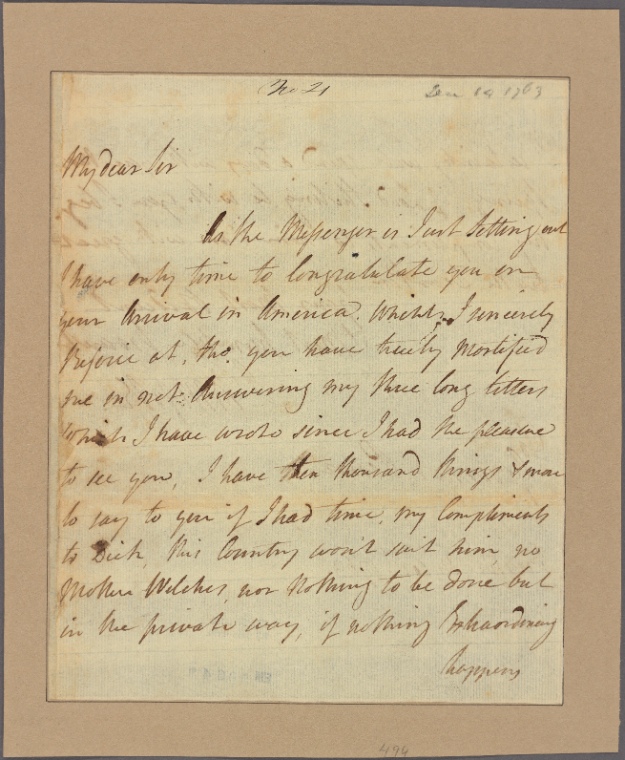 No 21
Dec 19 1763
My dear Sir
As the Messenger is Just Setting out
I have only time to Congratulate you on
your Arrival in America. Which I sincerely
Rejoice at, tho. you have truely Mortified
me in not Answering my three long letters
Which I have wrote since I had the pleasure
to see you, I have then thousand things & more
to say to you if I had time, my Compliments
to Dick, this Country won't suit him, no
Mother Welches, nor Nothing to be done but
in the private way, if nothing Extraordinary
happens
494